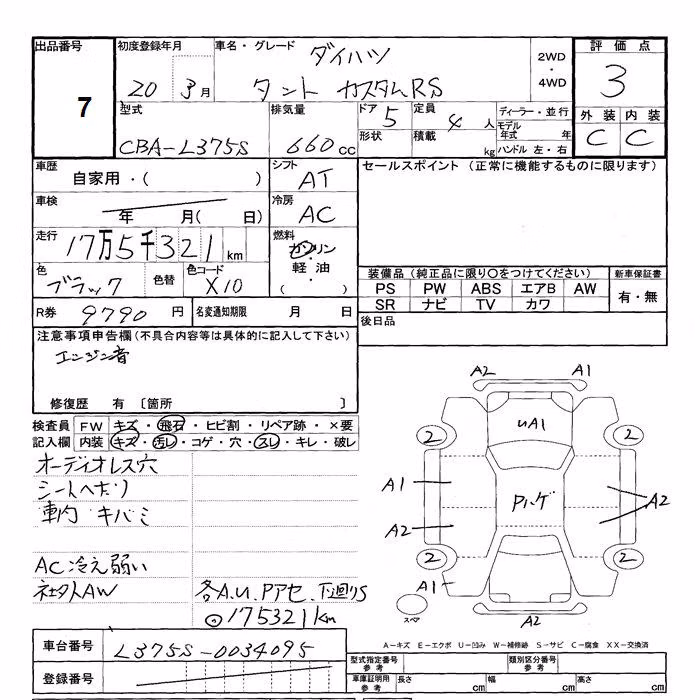 出品番号 初度登録年月 車名・グレード ダイハツ 2WD・4WD 評価点
7 20 3月 タント カスタムRS 3
型式 排気量 ドア 5 定員 4人 ディーラー・並行 外装 内装
CBA-L375S 660cc 形状 積載 kg モデル年式 年 ハンドル 左・右 C C
車歴 自家用・( ) シフト AT セールスポイント (正常に機能するものに限ります)
車検 年 月( 日) 冷房 AC
走行 17万5千321km 燃料 ガソリン・軽油・( )
色 ブラック 色替 色コード X10 装備品 (純正品に限り○をつけてください) 新車保証書
PS PW ABS エアB AW 有・無
SR ナビ TV カワ
R券 9790円 名変通知期限 月 日 後日品
注意事項申告欄(不具合内容等は具体的に記入して下さい)
エンジン音
修復歴 有 〔箇所 〕
検査員 FW キズ・飛石・ヒビ割・リペア跡・×要
記入欄 内装 キズ・汚レ・コゲ・穴・スレ・キレ・破レ
オーディオレス穴
シートヘタリ
車内 キバミ
AC冷え弱い
社外AW 各A.U.Pアセ.下廻りS
◎175321km
A2 A1
UA1
2 2
A1 Pハゲ A2
A2
2 2
A1
スペア A2
車台番号 L375S-0034095
登録番号
A-キズ E-エクボ U-凹み W-補修跡 S-サビ C-腐食 XX-交換済
型式指定番号 参考 類別区分番号 参考
車庫証明用 参考 長さ cm 幅 cm 高さ cm